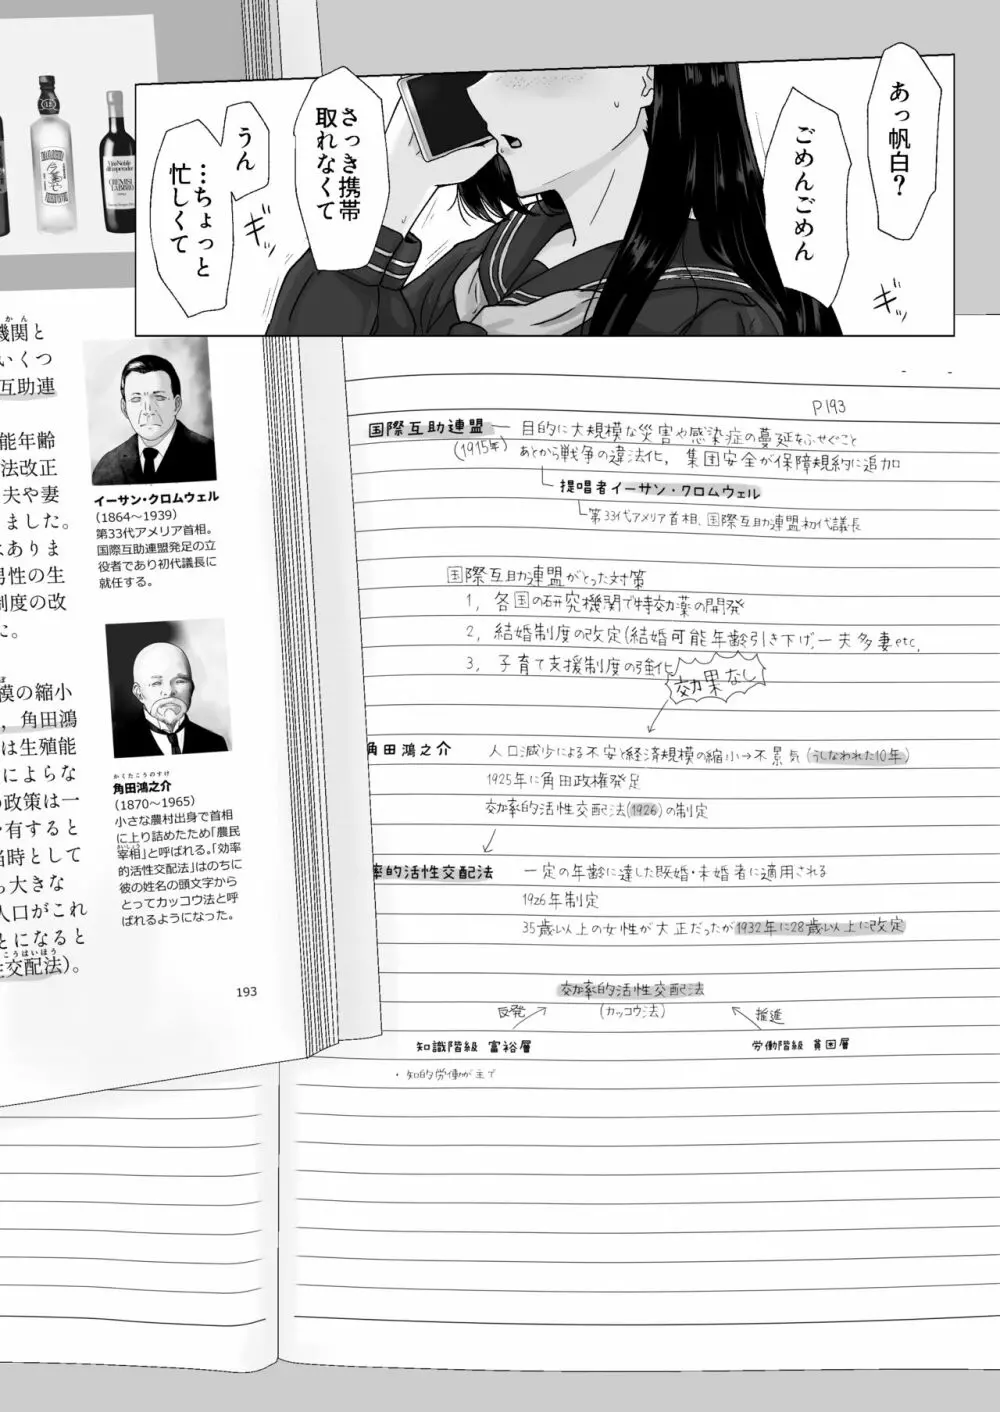 あっ帆白？
ごめんごめん
さっき携帯
取れなくて
うん
…ちょっと
忙しくて
ギシッ
ギッ
かん
機関と
いくつ
互助連
能年齢
法改正
夫や妻
ました。
はありま
男性の生
制度の改
た。
模の縮小
，角田鴻
は生殖能
によらな
の政策は一
を有すると
当時として
ら大きな
人口がこれ
とになると
こうはいほう
性交配法)。
イーサン・クロムウェル
（1864～1939）
第33代アメリア首相。
国際互助連盟発足の立
役者であり初代議長に
就任する。
かくたこうのすけ
角田鴻之介
（1870～1965）
小さな農村出身で首相
に上り詰めたため「農民
さいしょう
宰相」と呼ばれる。「効率
的活性交配法」はのちに
彼の姓名の頭文字から
とってカッコウ法と呼
ばれるようになった。
193
P193
国際互助連盟 ― 目的に大規模な災害や感染症の蔓延をふせぐこと
（1915年） あとから戦争の違法化，集団安全が保障規約に追加
提唱者イーサン・クロムウェル
第33代アメリア首相、国際互助連盟初代議長
国際互助連盟がとった対策
1，各国の研究機関で特効薬の開発
2，結婚制度の改定(結婚可能年齢引き下げ,一夫多妻etc,
3，子育て支援制度の強化
効果なし
角田鴻之介 人口減少による不安と経済規模の縮小→不景気(うしなわれた10年)
1925年に角田政権発足
効率的活性交配法(1926)の制定
率的活性交配法 ― 一定の年齢に達した既婚・未婚者に適用される
1926年制定
35歳以上の女性が大正だったが1932年に28歳以上に改定
効率的活性交配法
(カッコウ法)
反発
推進
知識階級 富裕層
労働階級 貧困層
・知的労働が主で